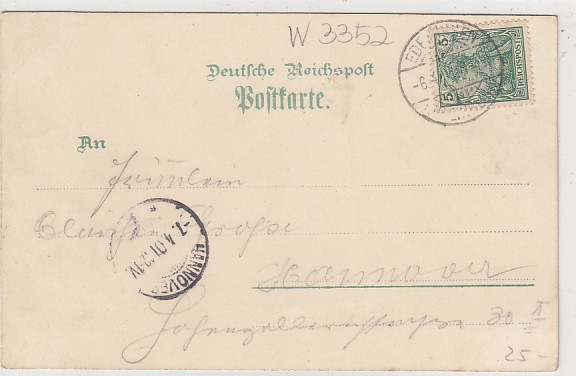 W 3352
5
REICHSPOST
5
Deutsche Reichspost
Postkarte.
An
Fräulein
Große
Hannover
Hohenzollernstrasse 30 II
25-
HANNOVER
-7.4.01.